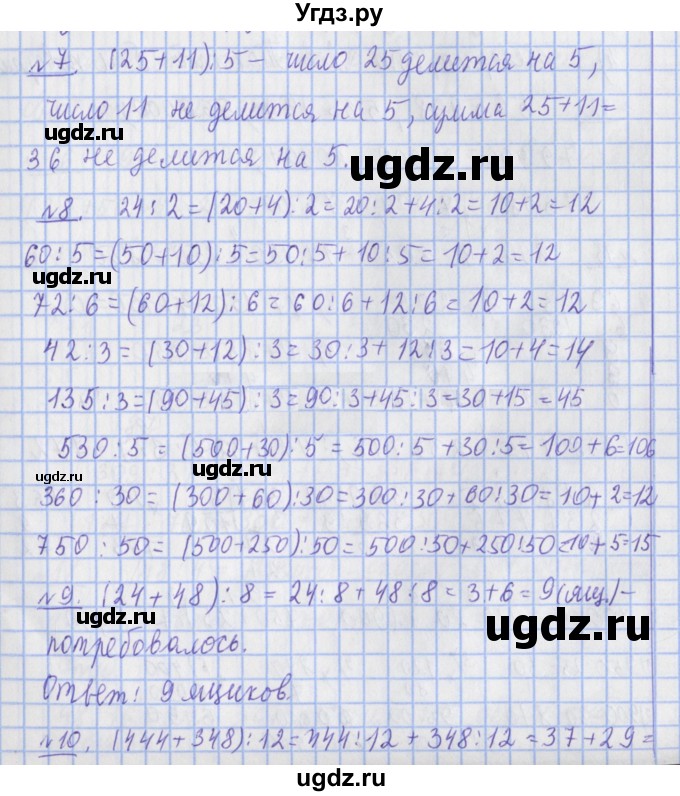 Угдз.ру
№7. (25+11):5 – число 25 делится на 5,
число 11 не делится на 5, сумма 25+11=
ugdz.ru
36 не делится на 5.
ugdz.ru
№8. 24:2=(20+4):2=20:2+4:2=10+2=12
60:5=(50+10):5=50:5+10:5=10+2=12
ugdz.ru
72:6=(60+12):6=60:6+12:6=10+2=12
42:3=(30+12):3=30:3+12:3=10+4=14
135:3=(90+45):3=90:3+45:3=30+15=45
530:5=(500+30):5=500:5+30:5=100+6=106
ugdz.ru
ugdz.ru
360:30=(300+60):30=300:30+60:30=10+2=12
750:50=(500+250):50=500:50+250:50=10+5=15
№9. (24+48):8=24:8+48:8=3+6=9(ящ)–
ugdz.ru
ugdz.ru
потребовалось.
Ответ: 9 ящиков.
№10. (444+348):12=444:12+348:12=37+29=
ugdz.ru
ugdz.ru